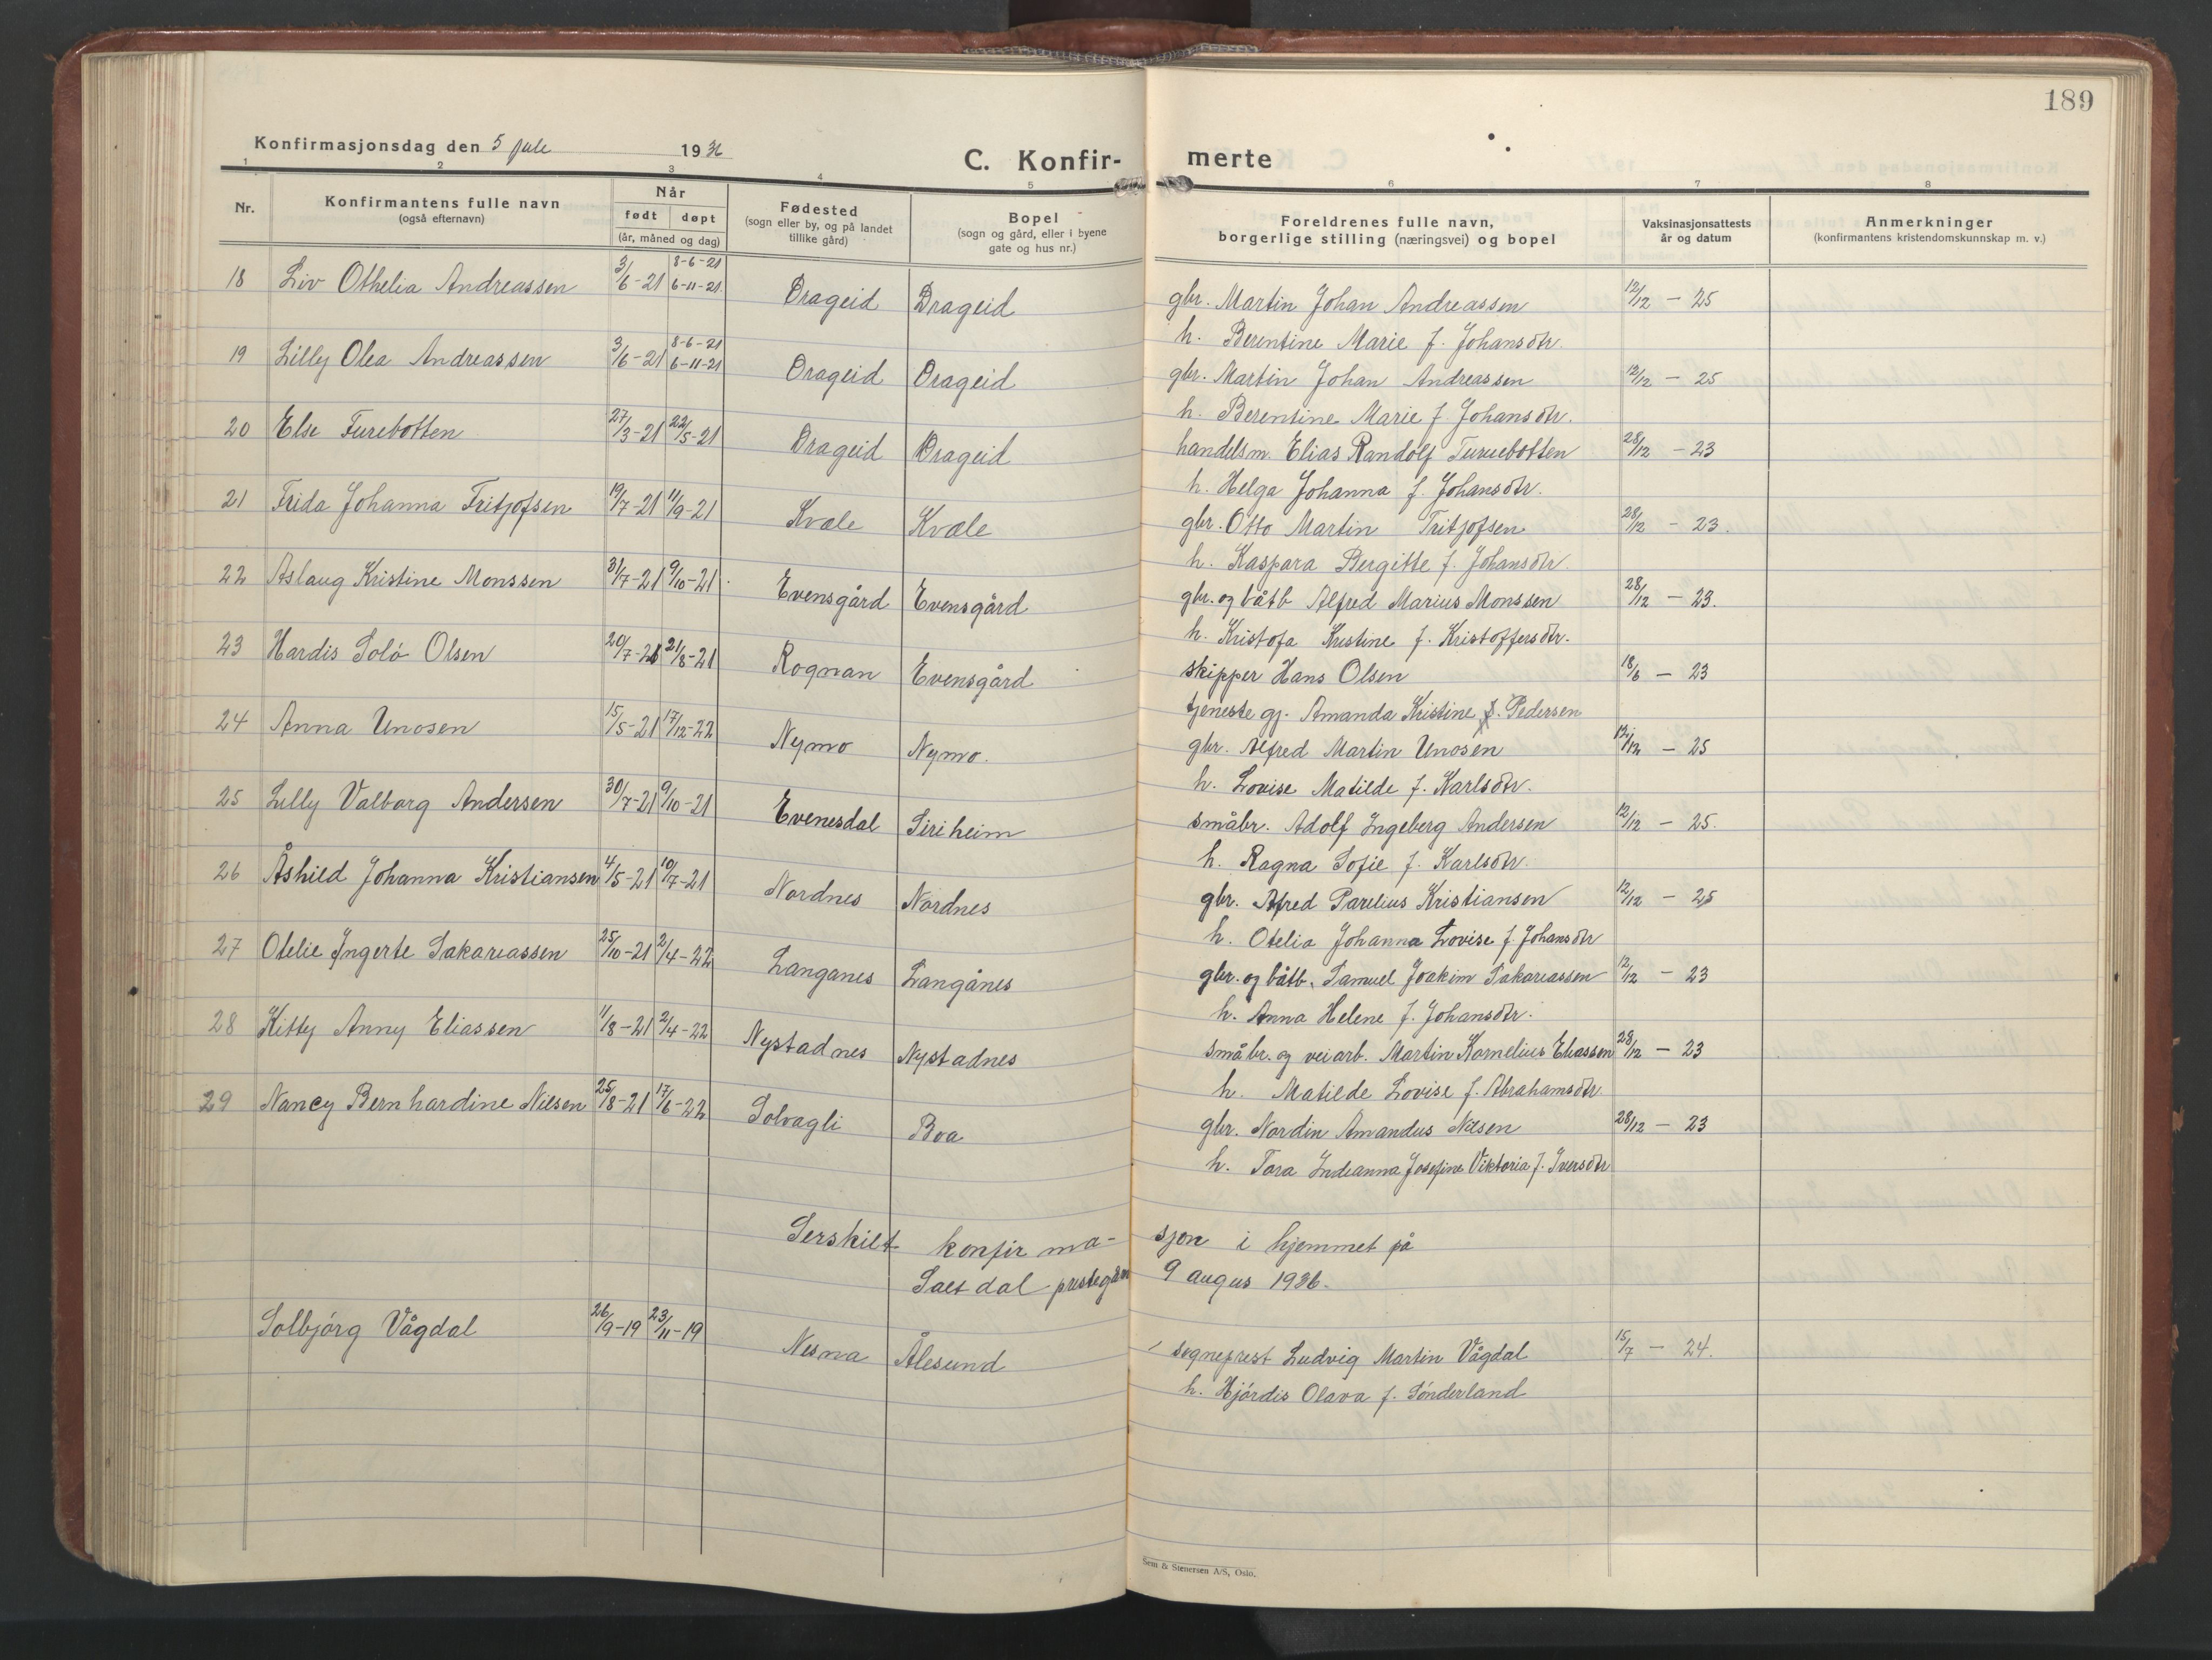 189
Konfirmasjonsdag den 5 juli 1936
C. Konfir- merte
1 2 3 4 5 6 7 8
Nr.
Konfirmantens fulle navn
(også efternavn)
Når
født døpt
(år, måned og dag)
Fødested
(sogn eller by, og på landet
tillike gård)
Bopel
(sogn og gård, eller i byene
gate og hus nr.)
Foreldrenes fulle navn,
borgerlige stilling (næringsvei) og bopel
Vaksinasjonsattests
år og datum
Anmerkninger
(konfirmantens kristendomskunnskap m. v.)
8-6-21
18 Liv Othelia Andreassen 3/6-21 6-11-21 Drageid Drageid gbr. Martin Johan Andreassen 12/12 - 25
h. Berentine Marie f. Johansdtr.
8-6-21
19 Lilly Olea Andreassen 3/6-21 6-11-21 Drageid Drageid gbr. Martin Johan Andreassen 12/12 - 25
h. Berentine Marie f. Johansdtr.
20 Else Furebotten 27/3-21 22/5-21 Drageid Drageid handelsm. Elias Randolf Furuebotten 28/12 - 23
h. Helga Johanna f. Johansdtr.
21 Frida Johanna Fritjofsen 19/7-21 11/9-21 Kvæle Kvæle gbr. Otto Martin Fritjofsen 28/12 - 23.
h. Kaspara Bergitte f. Johansdtr.
22 Aslaug Kristine Monssen 31/7-21 9/10-21. Evensgård Evensgård gbr. og båtb Alfred Marius Monssen 28/12 - 23.
h. Kristofa Kristine f. Kristoffersdtr.
23 Hardis Solø Olsen 20/7-21 21/8-21 Rognan Evensgård skipper Hans Olsen 18/6 - 23
tjeneste gj. Amanda Kristine f. Pedersen
24 Anna Unosen 15/5-21 17/12-22 Nymo Nymo. gbr. Alfred Martin Unosen 12/12 - 25
h. Lovise Matilde f. Karlsdtr.
25 Lilly Valborg Andersen 30/7-21 9/10-21 Evenesdal Siriheim småbr. Adolf Ingeberg Andersen 12/12 - 25.
h. Ragna Sofie f. Karlsdtr.
26 Åshild Johanna Kristiansen 4/5-21 10/7-21 Nordnes Nordnes gbr. Alfred Parelius Kristiansen 12/12 - 25
h. Otelia Johanna Lovise f. Johansdtr
27 Otelie Ingerte Sakariassen 25/10-21 2/4-22 Langanes Langånes gbr. og båtb. Samuel Joakim Sakariassen 12/12 - 23
h. Anna Helene f. Johansdtr.
28 Kitty Anny Eliassen 11/8-21 2/4-22 Nystadnes Nystadnes småbr. og veiarb. Martin Kornelius Eliassen 28/12 - 23
h. Matilde Lovise f. Abrahamsdtr.
29 Nancy Bernhardine Nilsen 25/8-21 17/6-22 Solvagli Bva gbr. Nordin Amandus Nilsen 28/12 - 23
h. Tora Indianna Josefine Viktoria f. Iversdtr
Serskilt konfirma- sjon i hjemmet på
Saltdal prestegård 9 augus 1936.
Solbjørg Vågdal 26/9-19 23/11-19 Nesna Ålesund sogneprest Ludvig Martin Vågdal 15/7 - 24.
h. Hjørdis Olava f. Sønderland
Sem & Stenersen A/S, Oslo.